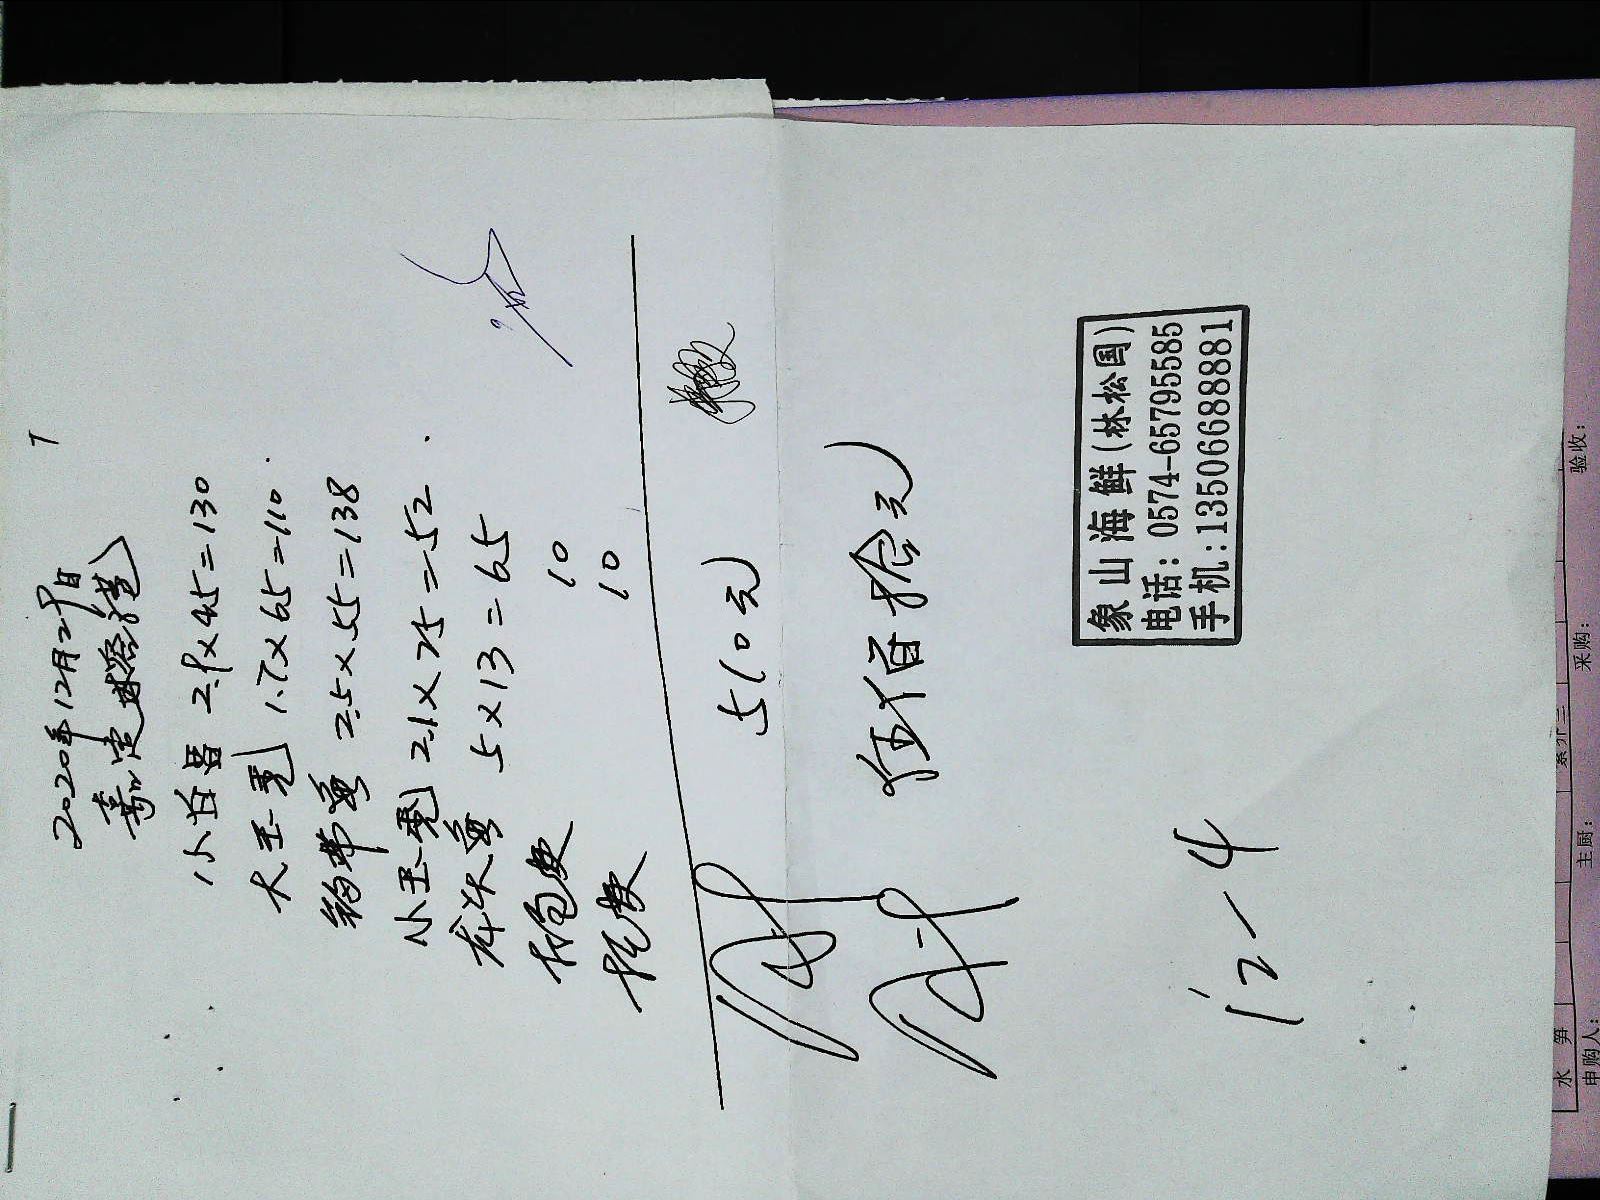 2020年12月29日
小白 2.9×45=130
大玉秃 1.7×65=110
钓带鱼 2.5×55=138
小玉秃 2.1×25=52
龙头鱼 5×13=65
打包费 10
托费 10
510元
伍佰拾元
12-4
象山海鲜(林松国)
电话:0574-65795585
手机:13506688881
水 笋
申购人:
主厨:
采购:
验收: